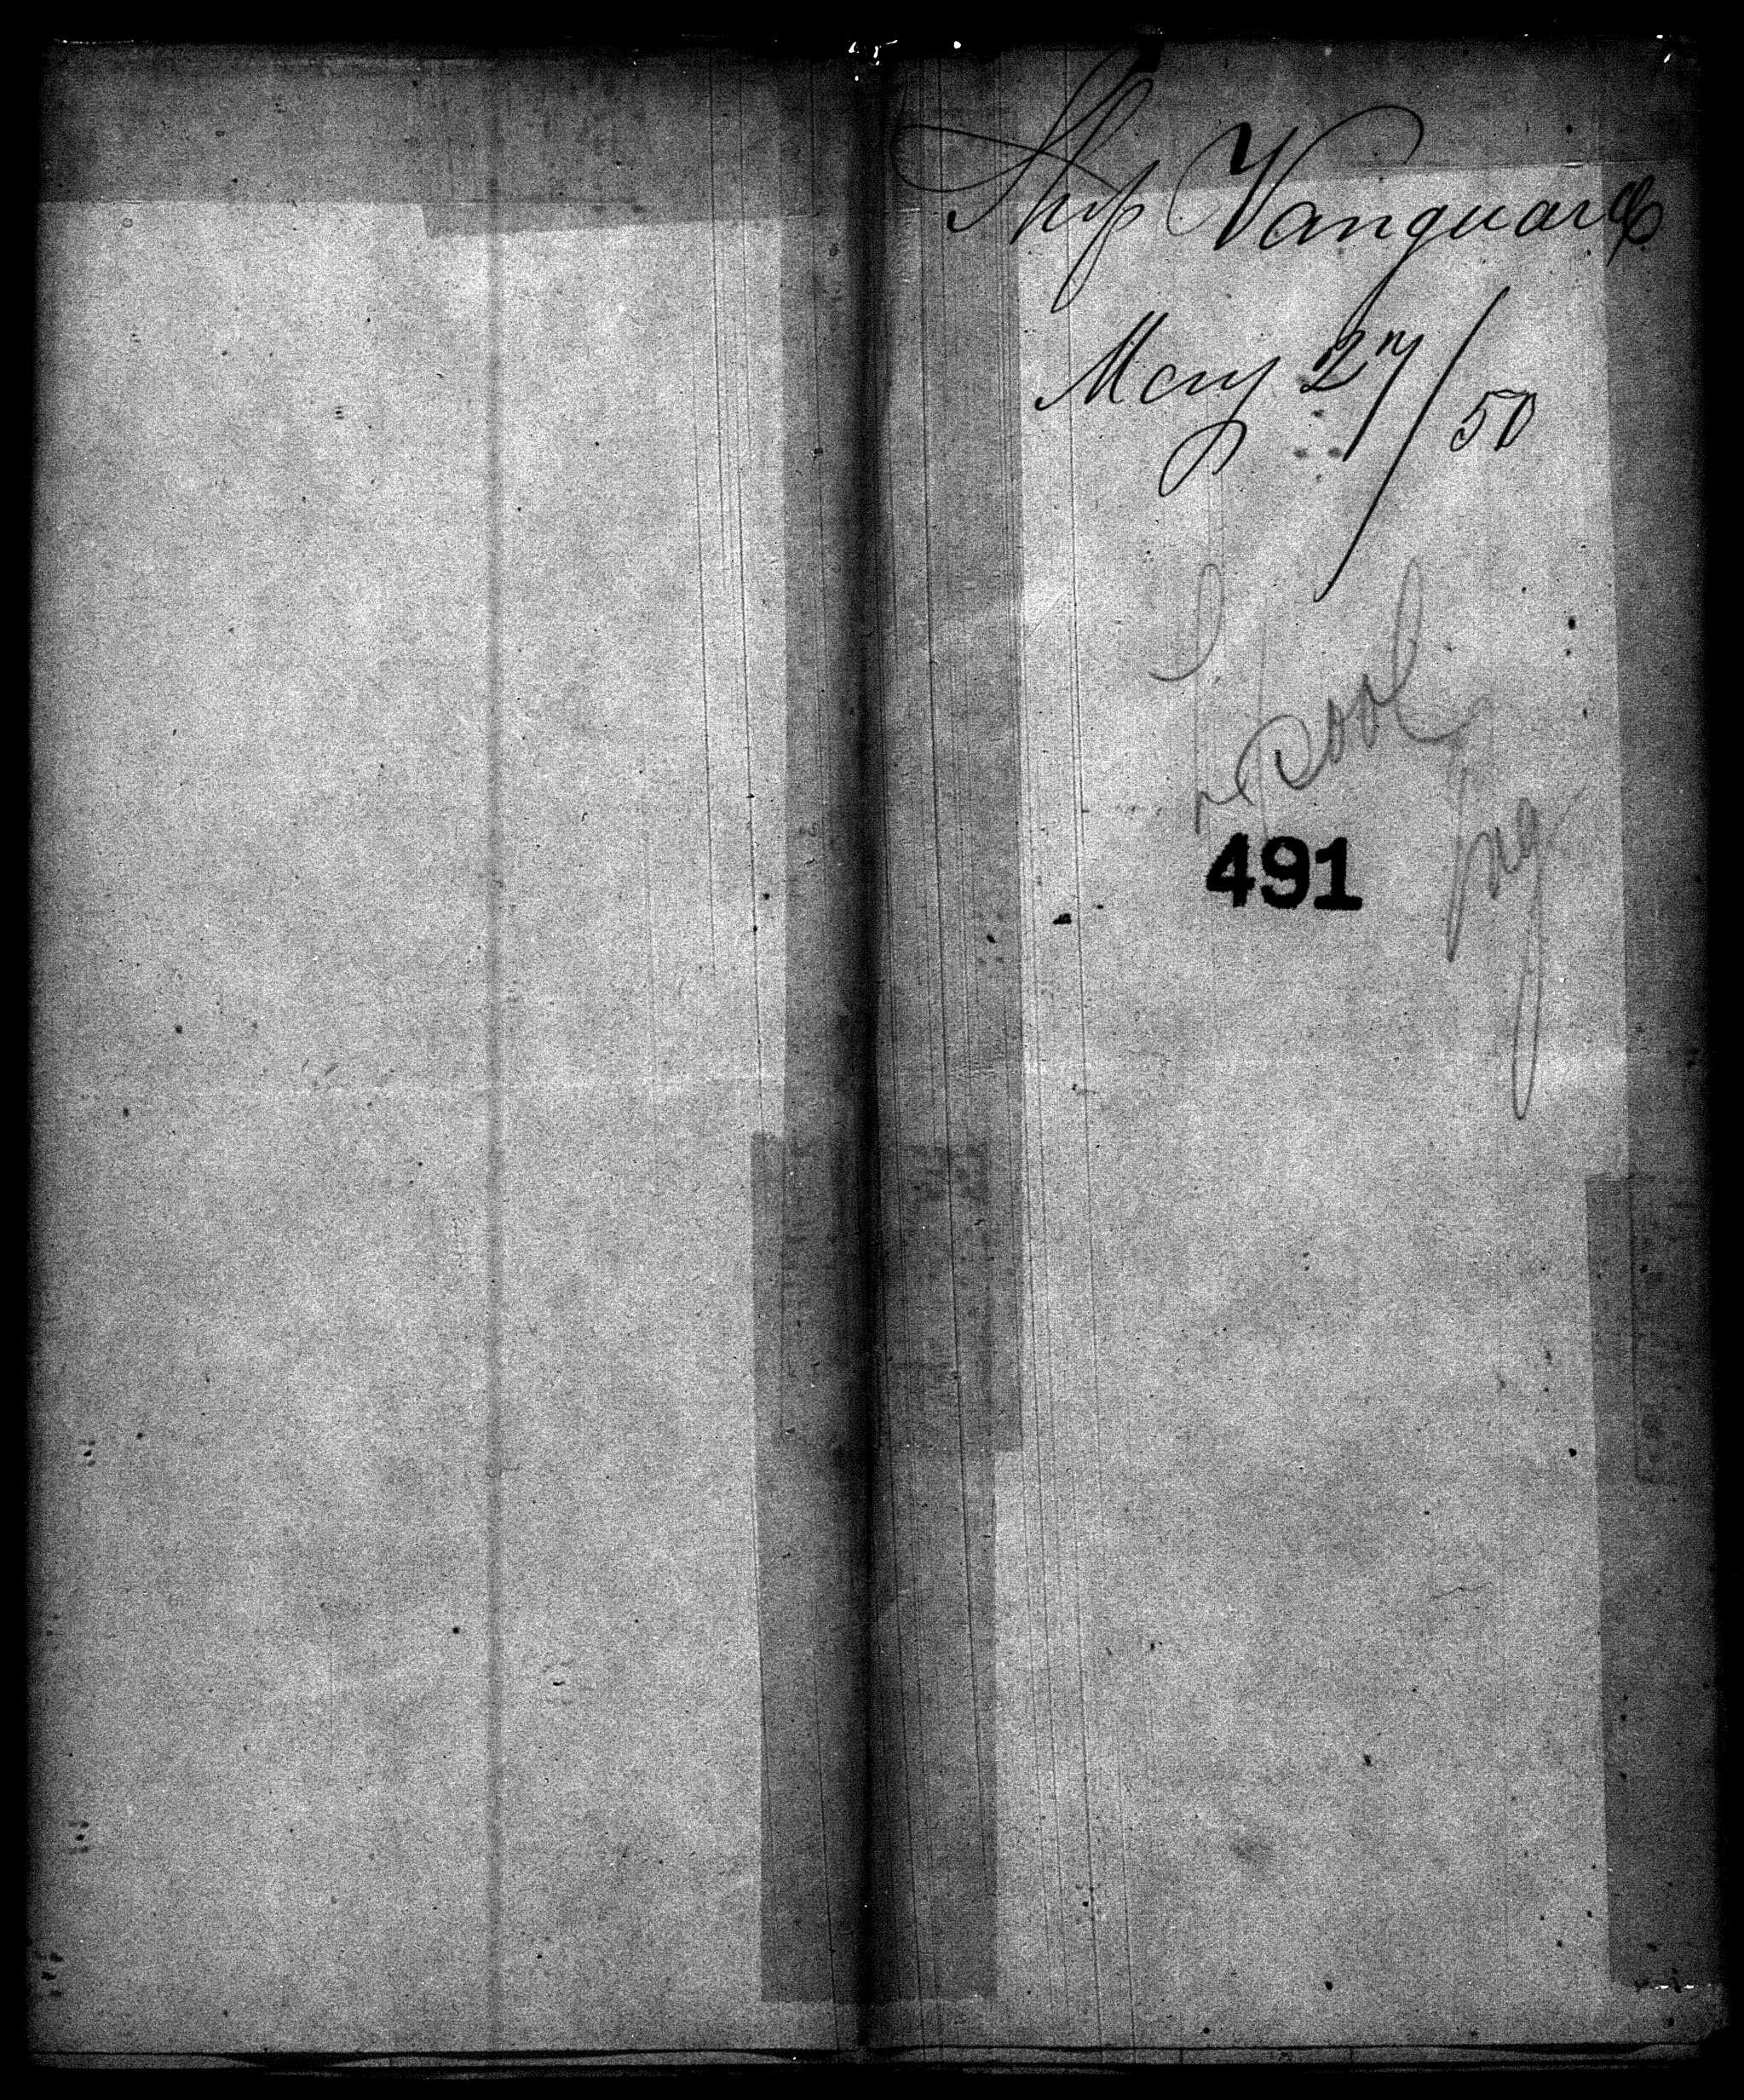 Ship Vanguard
May 27/50
L
pool
491